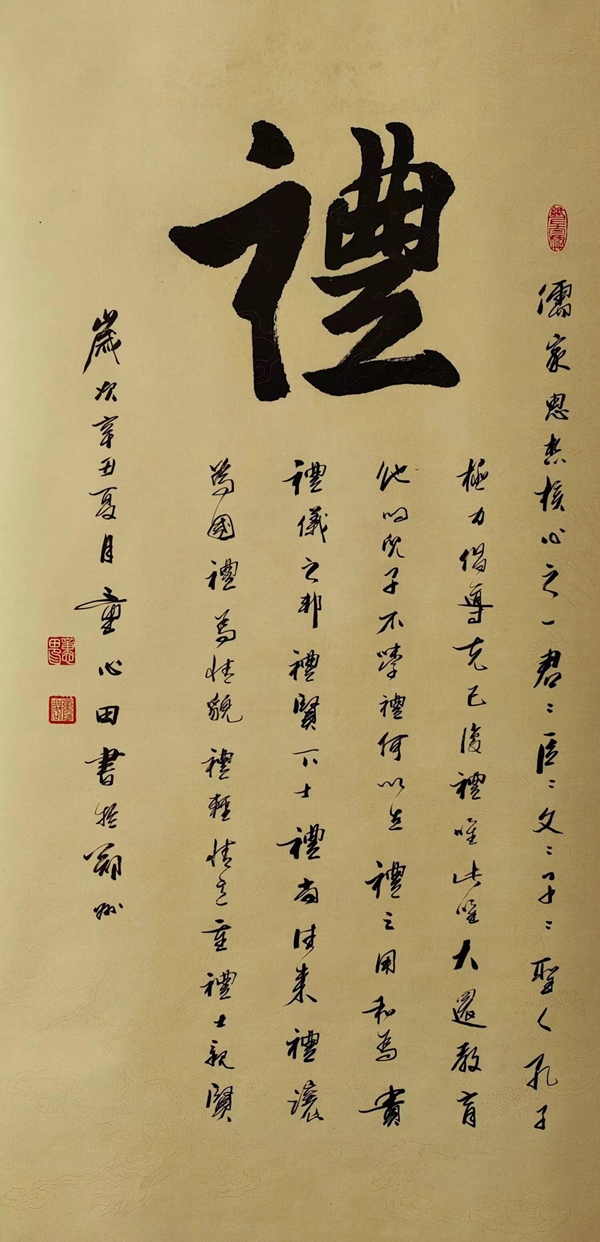 禮
儒家思想核心之一君〻臣〻父〻子〻聖人孔子
極力倡導克己復禮唯此唯大還教育
他的兒子不學禮何以立禮之用和為貴
禮儀之邦禮賢下士禮尚往來禮讓
為國禮為情貌禮輕情意重禮士親賢
歲次辛丑夏月童心田書於鄭州